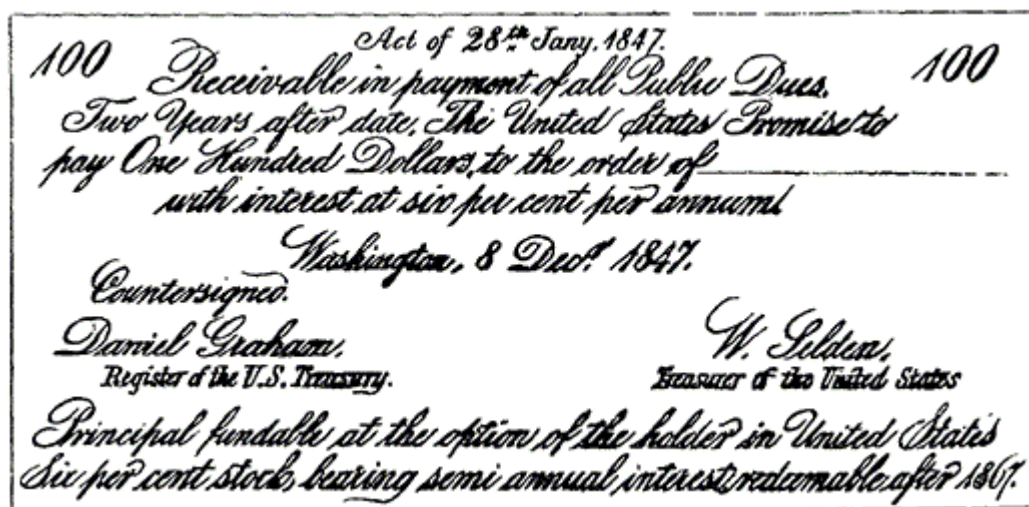 Act of 28th Jany. 1847.
100 100
Receivable in payment of all Public Dues.
Two Years after date, The United States Promise to
pay One Hundred Dollars, to the order of
with interest at six per cent per annum
Washington, 8 Decr. 1847.
Countersigned.
Daniel Graham, W. Selden,
Register of the U.S. Treasury. Treasurer of the United States
Principal fundable at the option of the holder in United States
Six per cent stock, bearing semi annual interest, redeemable after 1867.